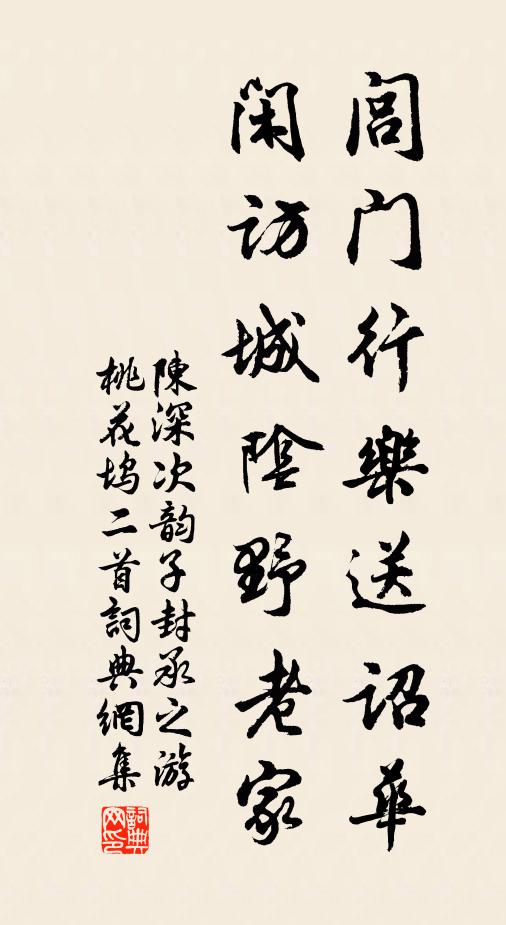 閭门行樂送詔華
閑訪城陰野老家
陳深次韵子封承之游
桃花塢二首詞典網集
詞典网印